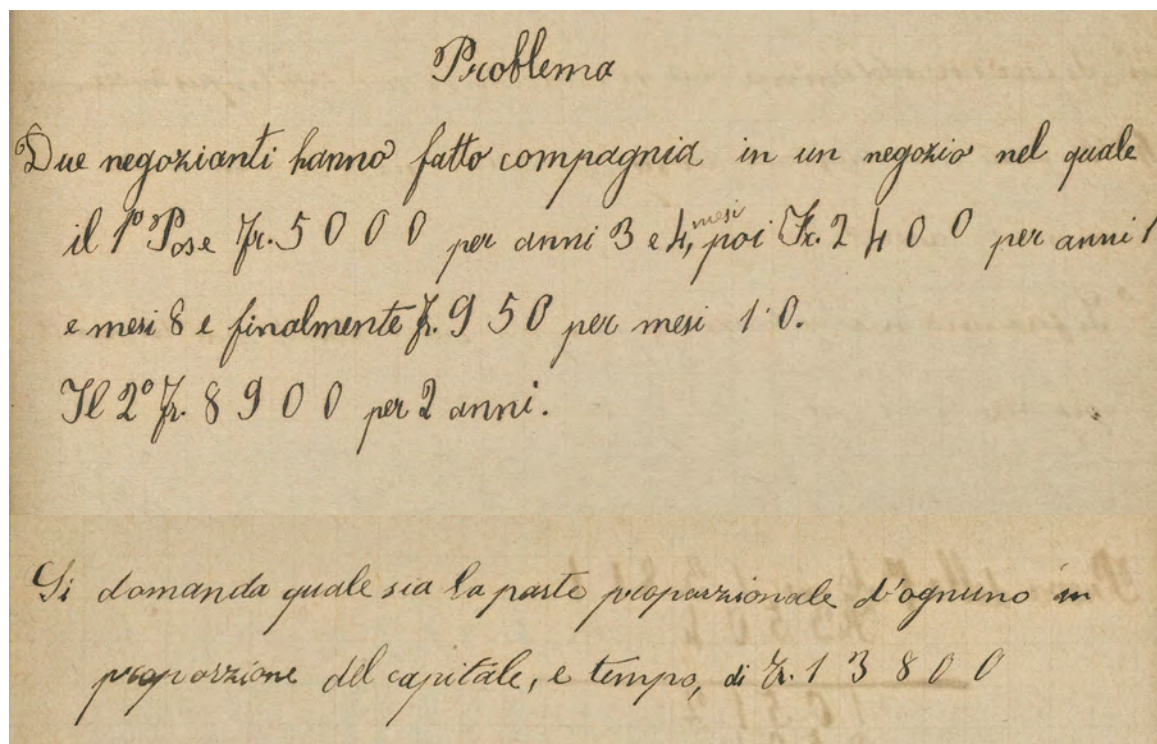 Problema
Due negozianti hanno fatto compagnia in un negozio nel quale
il 1º Pose Fr. 5000 per anni 3 e 4, mesi poi Fr. 2400 per anni 1
e mesi 8 e finalmente Fr. 950 per mesi 10.
Il 2º Fr. 8900 per 2 anni.
Si domanda quale sia la parte proporzionale d'ognuno in
proporzione del capitale, e tempo, di Fr. 13800